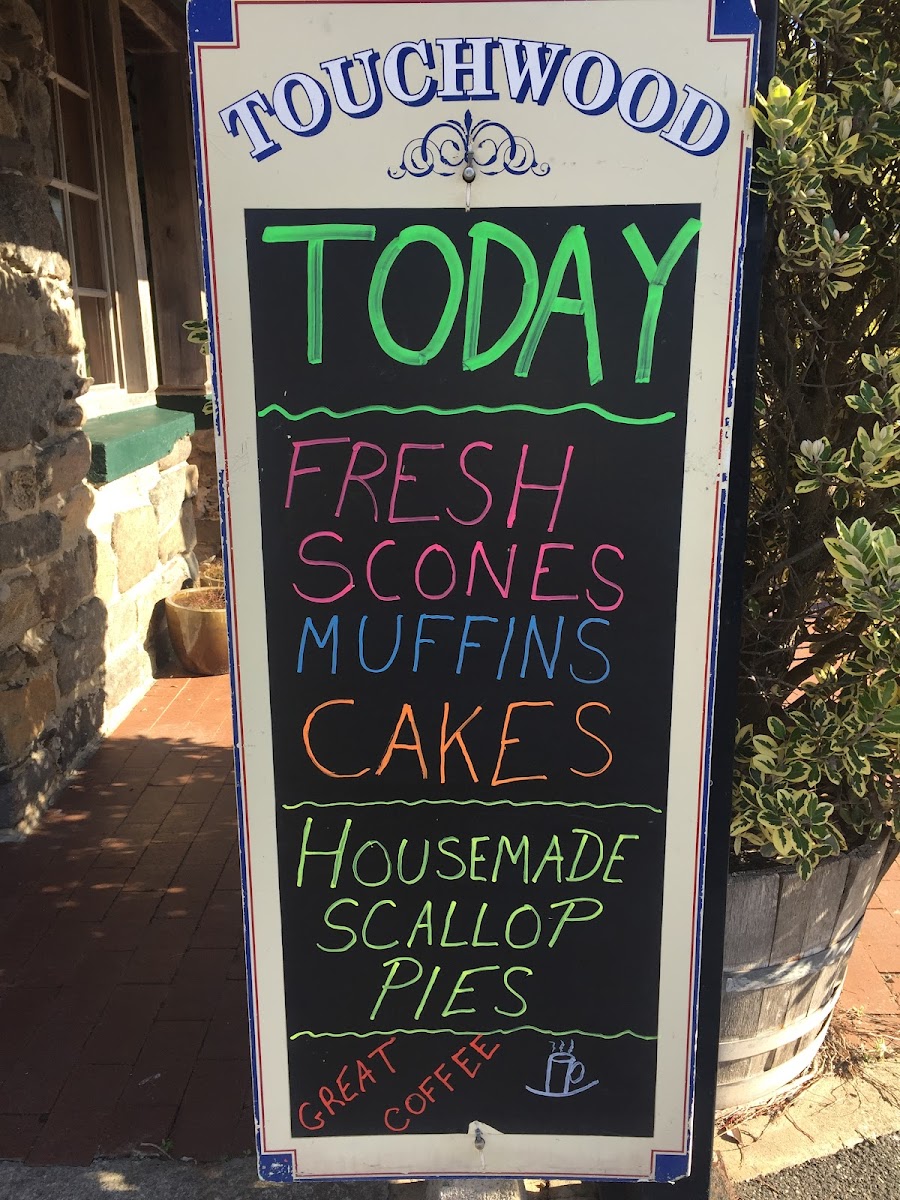 TOUCHWOOD
TODAY
FRESH
SCONES
MUFFINS
CAKES
HOUSEMADE
SCALLOP
PIES
GREAT COFFEE